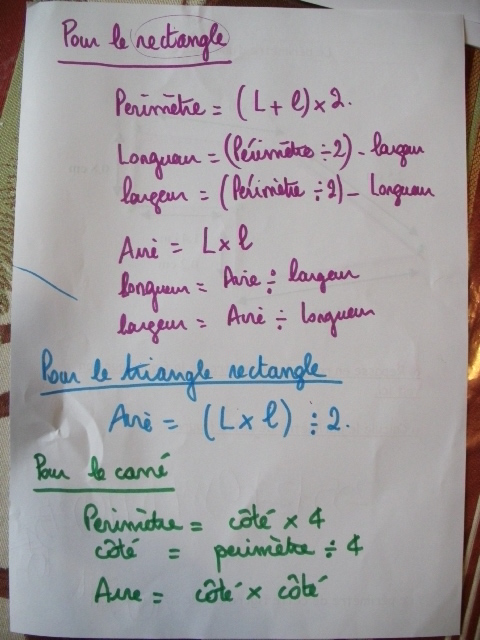 Pour le rectangle
Périmètre = (L + l) × 2.
Longueur = (Périmètre ÷ 2) - largeur
largeur = (Périmètre ÷ 2) - Longueur
Airè = L × l
longueur = Aire ÷ largeur
largeur = Airè ÷ longueur
Pour le triangle rectangle
Airè = (L × l) ÷ 2.
Pour le carré
Périmètre = côté × 4
côté = perimètre ÷ 4
Aire = côté × côté